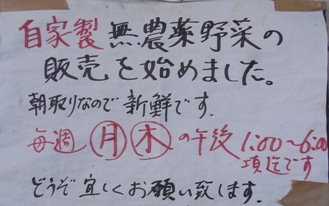 自家製 無農薬野菜の
販売を始めました。
朝取りなので新鮮です.
毎週 月 木 の午後 1:00～6:00
項迄です
どうぞ宜しくお願い致します.